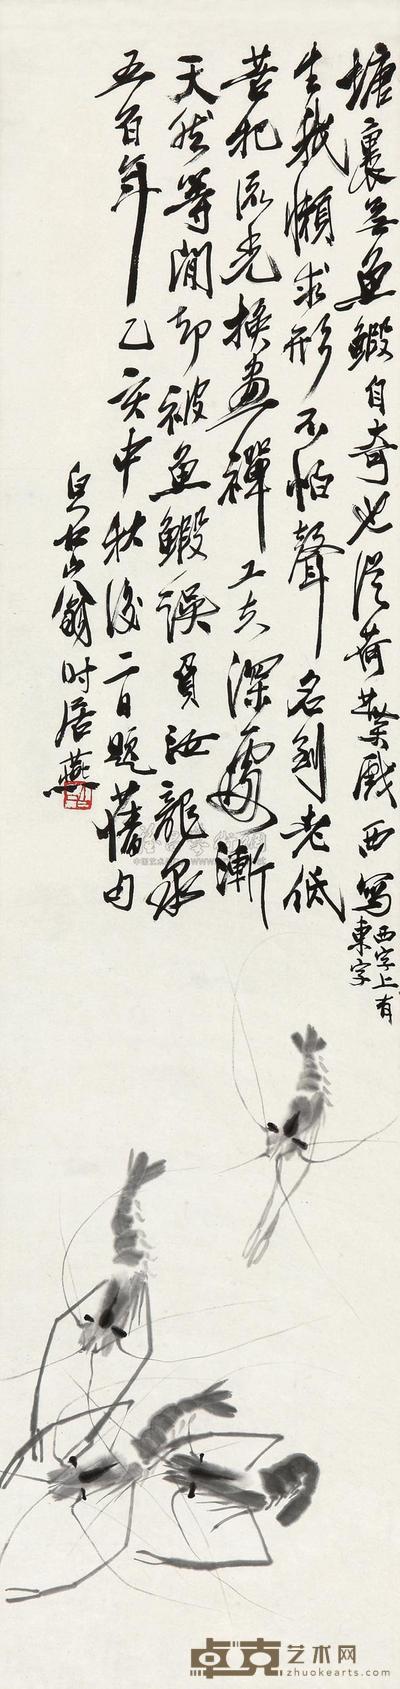 塘裏無魚鰕自奇也從荷葉戲西寫
西字上有
東字
生我懶求形不怕聲名到老低
苦把流光換畫禪工夫深處漸
天然等閒却被魚鰕誤負汝龍泉
五百年乙亥中秋後二日題舊句
白石山翁时居燕
卓克艺术网
zhuokearts.com